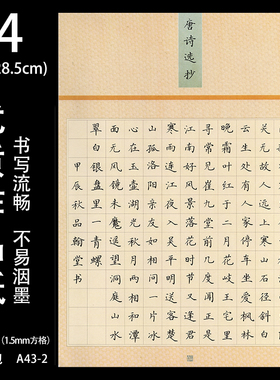 4
28.5cm)
书写流畅 不易洇墨
(1.5mm方格)
A43-2
唐诗选抄
云生处有人家停车坐爱枫林
晚霜叶红于二月花岐王宅里
寻常见崔九堂前几度闻正是
江南好风景落花时节又逢君
寒雨连江夜入吴平明送客楚
山孤洛阳亲友如相问一片冰
心在玉壶湖光秋月两相和潭
面无风镜未磨遥望洞庭山水
翠白银盘里一青螺
甲辰秋品翰堂书